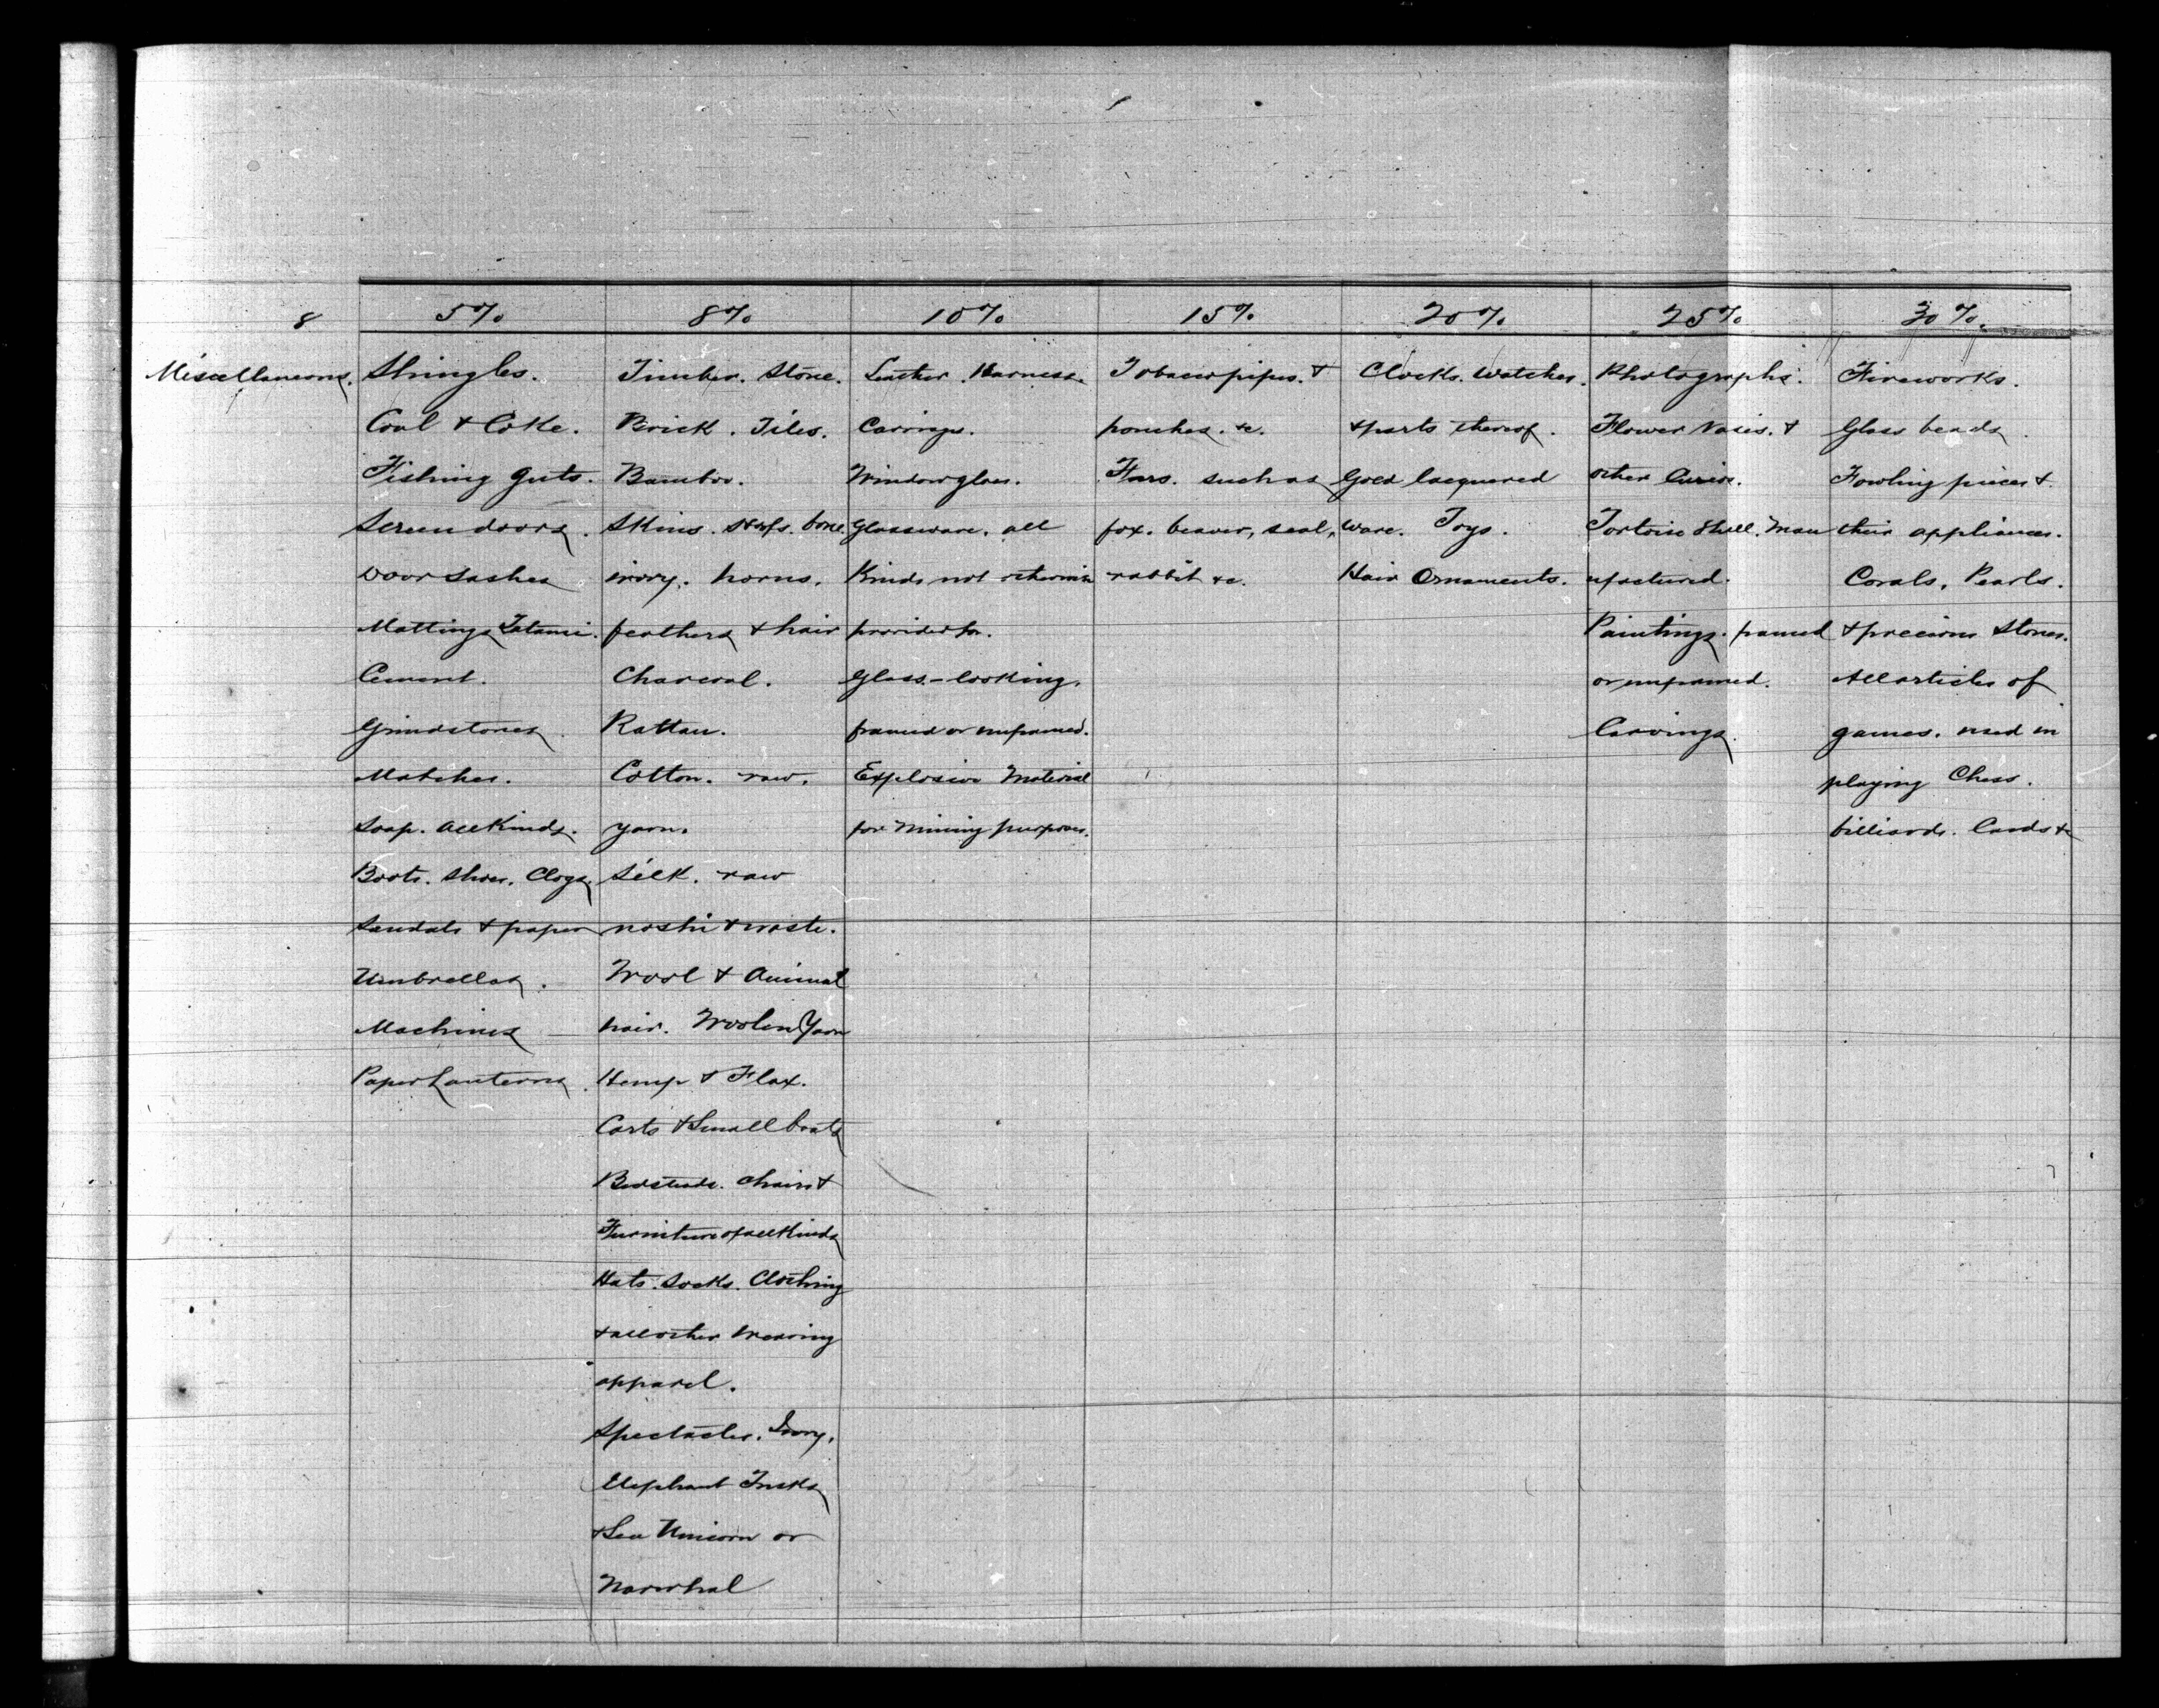 8
5%
8%
10%
15%
20%
25%
30%.
Miscellaneous.
Shingles.
Coal & Coke.
Fishing guts.
Screen doors.
Door Sashes
Mattings Tatami.
Cement.
Grindstones.
Matches.
Soap. all Kinds.
Boots. Shoes. Clogs.
Sandals & paper
Umbrellas.
Machines
Paper Lanterns.
Timber. Stone.
Brick. Tiles.
Bamboo.
Skins. bone.
ivory. horns.
feathers & hair
Charcoal.
Rattan.
Cotton. raw.
yarn.
Silk. raw
noshi & waste.
Wool & Animal
hair. Woolen Yarn
Hemp & Flax.
Carts & Small boats
Bedsteads. Chairs &
Furniture of all Kinds
Hats. Socks. Clothing
& all other Wearing
apparel.
Spectacles. Ivory.
Elephant Tusks
& Sea Unicorn or
Narwhal
Leather. Harness.
Carriages.
Window glass.
Glassware. all
Kinds not otherwise
provided for.
Glass-looking.
framed or unframed.
Explosive Material
for Mining purposes.
Tobacco pipes. &
pouches. &c.
Furs. such as
fox. beaver, seal,
rabbit &c.
Clocks. Watches.
& parts thereof.
Gold lacquered
Ware. Toys.
Hair Ornaments.
Photographs.
Flower Vases. &
other Curios.
Tortoise Shell. Man
ufactured.
Paintings. framed
or unframed.
Carvings.
Fireworks.
Glass beads.
Fowling pieces &
their appliances.
Corals. Pearls.
& precious Stones.
All articles of
games. used in
playing Chess.
billiards. Cards &c